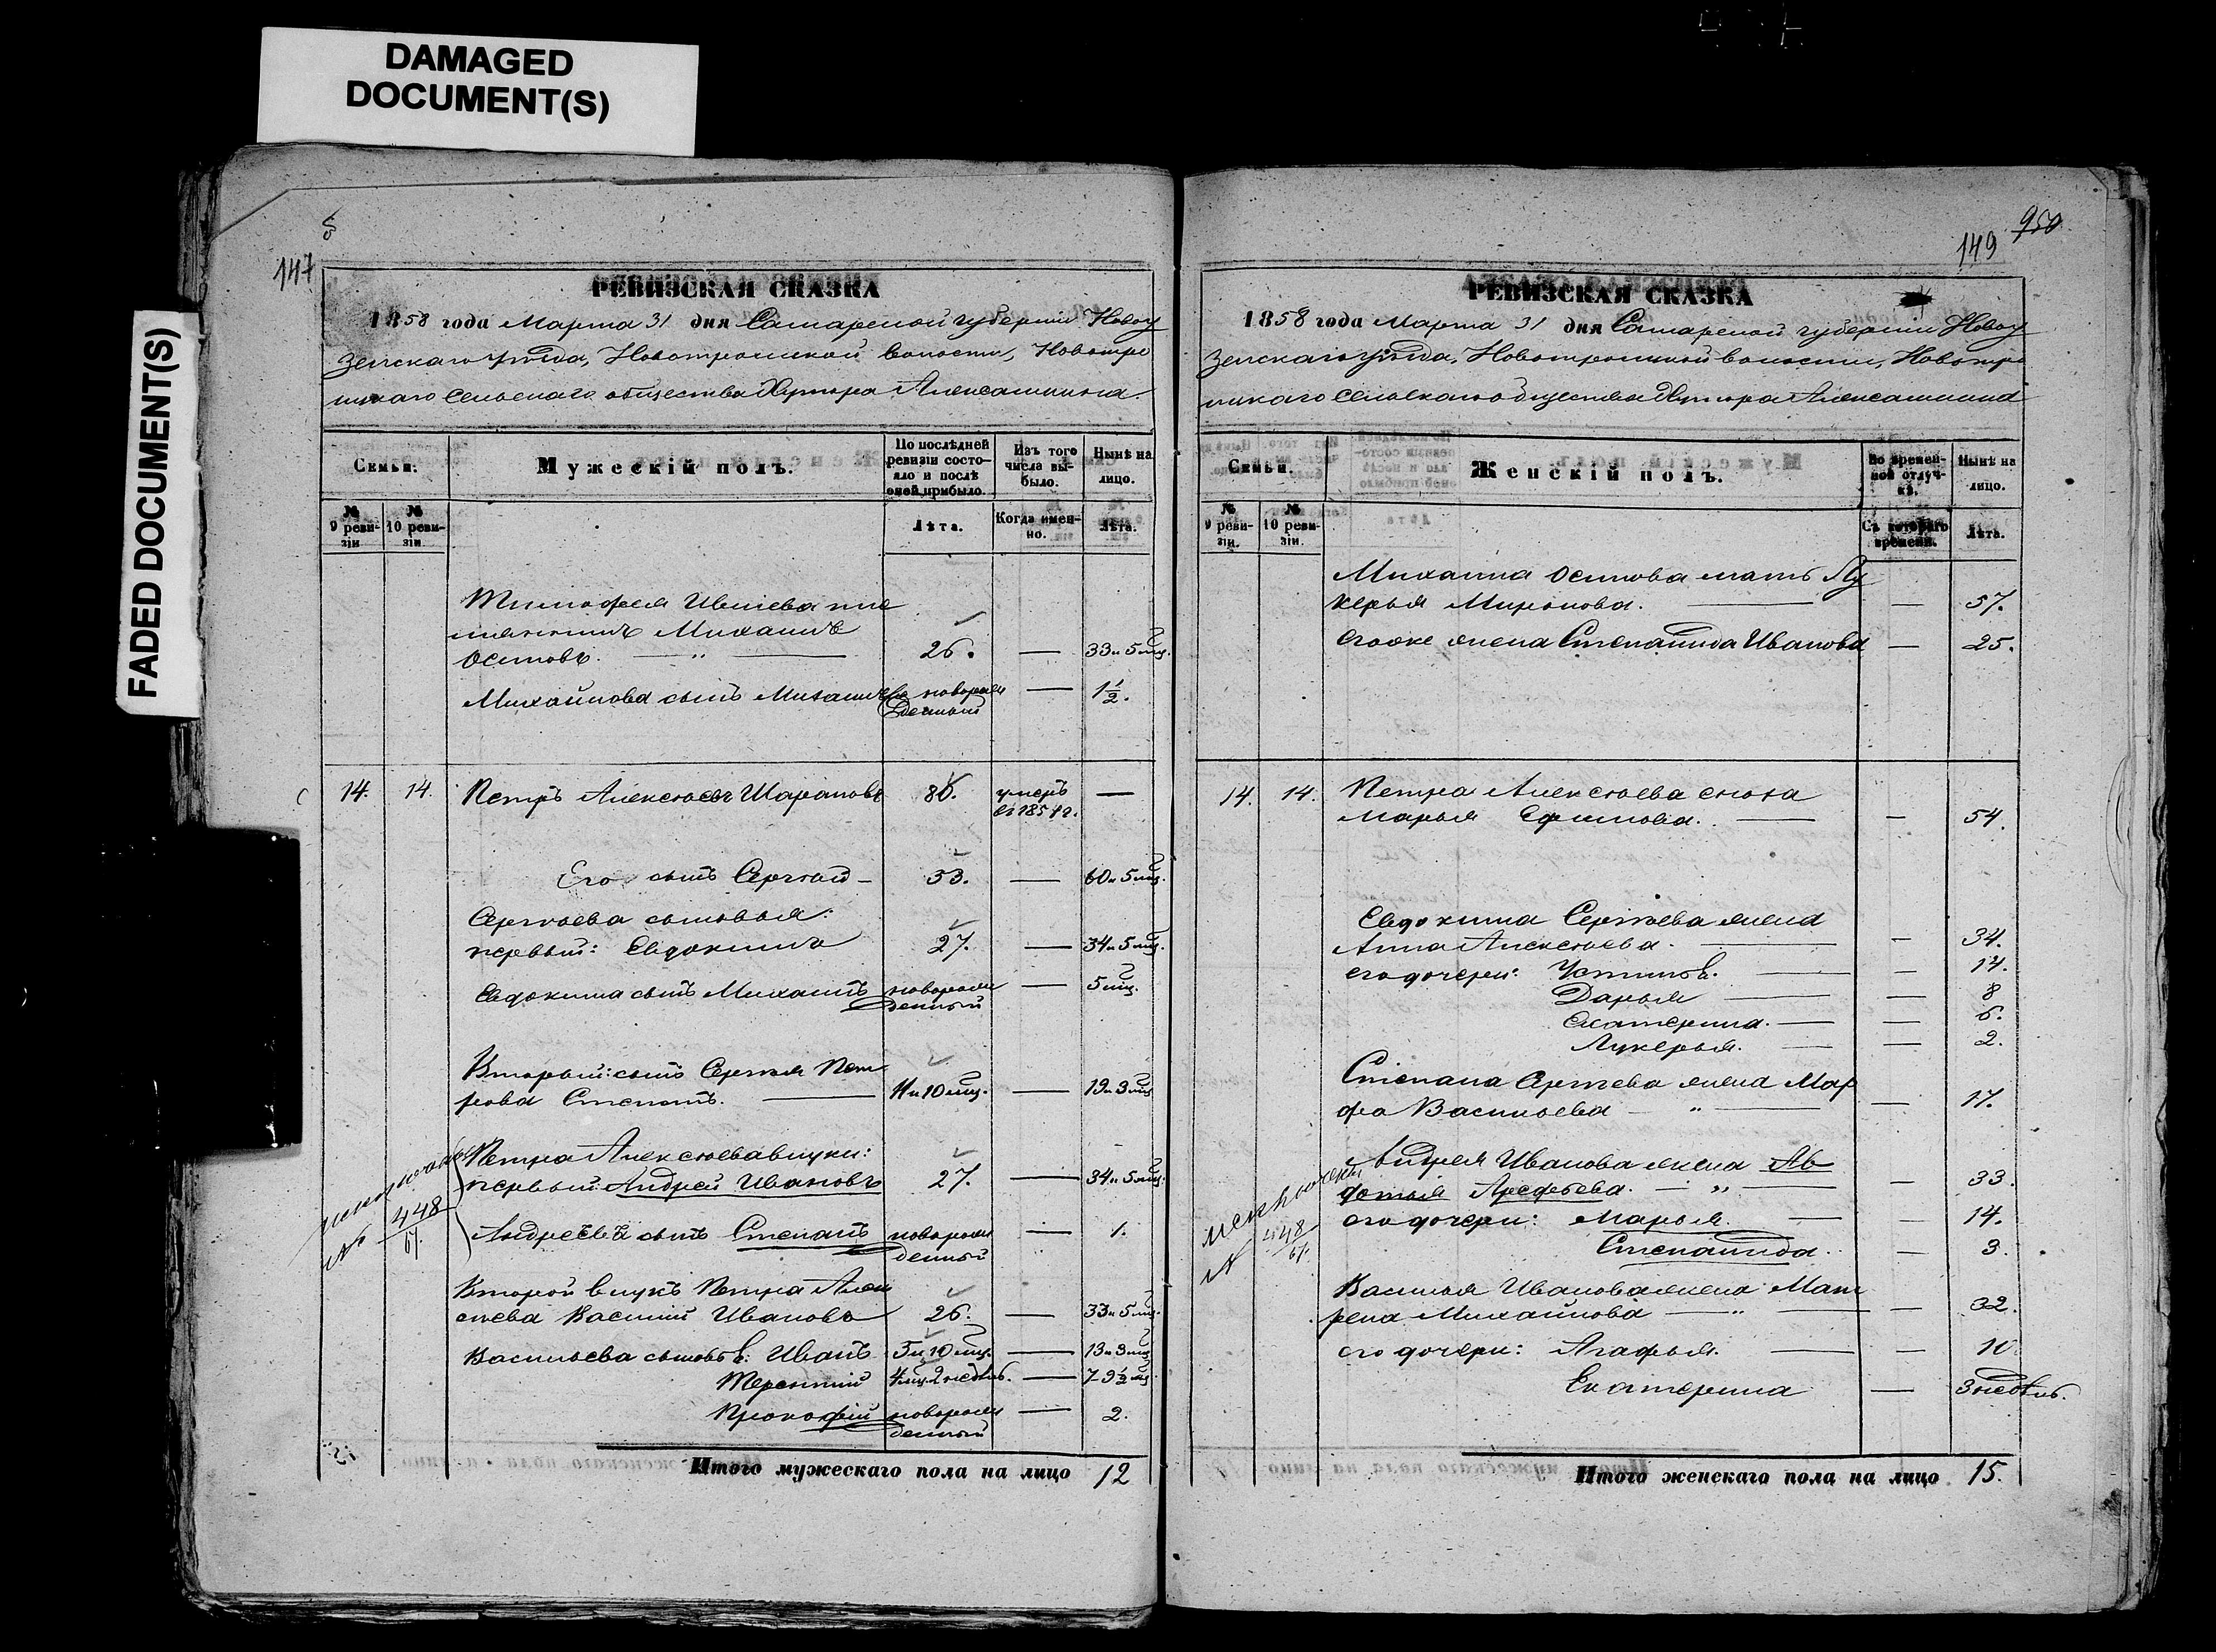 DAMAGED
DOCUMENT(S)
FADED DOCUMENT(S)
147
РЕВИЗСКАЯ СКАЗКА
1858 года Марта 31 дня Самарской губернии Новоу
зенскаго уѣзда, Новотроицкой волости, Новотро
ицкаго сельскаго общества Хутора Алексашкина
Семьи.
Мужескій полъ.
По послѣдней ревизіи состояло и послѣ оной прибыло.
Изъ того числа выбыло.
Нынѣ на лицо.
№ 9 ревизіи.
№ 10 ревизіи.
Лѣта.
Когда именно.
Лѣта.
Тимофея
племянникъ Михаилъ
Осиповъ. — " — 26. — 33 и 5 мц.
Михайлова сынъ Михаилъ новорожденный — 1½.
14. 14. Петръ Алексѣевъ Шараповъ умеръ —
Его сынъ Сергѣй — 53. — 60 и 5 мц.
Сергѣева сыновья:
первый: Евдокимъ 27. — 34 и 5 мц.
Евдокима сынъ Михаилъ новорожденный — 5 мц.
Вторый: сынъ Сергѣя Пет
рова Степанъ. — 11 и 10 мц. — 19 и 3 мц
Петра Алексѣева внуки:
первый: Андрей Ивановъ 27. — 34 и 5 мц.
№ 448/67.
Андреева сынъ Степанъ новорожденный — 1.
Второй внукъ Петра Алек
сѣева Василій Ивановъ 26. — 33 и 5 мц.
Васильева сыновья: Иванъ 5 и 10 мц. — 13 и 3 мц
Терентій 4 мц. 2 недѣл. — 7 9½ мц
Прокофій новорожденный — 2.
Итого мужескаго пола на лицо 12
149
950
РЕВИЗСКАЯ СКАЗКА
1858 года Марта 31 дня Самарской губернии Новоу
зенскаго уѣзда, Новотроицкой волости, Новотро
ицкаго сельскаго общества Хутора Алексашкина
Семьи.
Женскій полъ.
Во временной отлучкѣ.
Нынѣ на лицо.
№ 9 ревизіи.
№ 10 ревизіи.
Съ котораго времени.
Лѣта.
Михаила Осипова мать Лу
керья Миронова. — — 57.
его же жена Степанида Иванова — 25.
14. 14. Петра Алексѣева сноха
Марья Ефимова. — — 54.
Евдокима Сергѣева жена
Анна Алексѣева. — — 34.
его дочери: Устинья. — — 14.
Дарья — — 8
Екатерина. — — 6.
Лукерья. — — 2.
Степана Сергѣева жена Мар
фа Васильева — " — — 17.
Андрея Иванова жена Ав
дотья Арефьева. — " — — 33.
№ 448/67.
его дочери: Марья. — — 14.
Степанида. — 3.
Василья Иванова жена Мат
рена Михайлова — " — — 32.
его дочери: Агафья. — — 10.
Екатерина — 3 недѣль.
Итого женскаго пола на лицо 15.